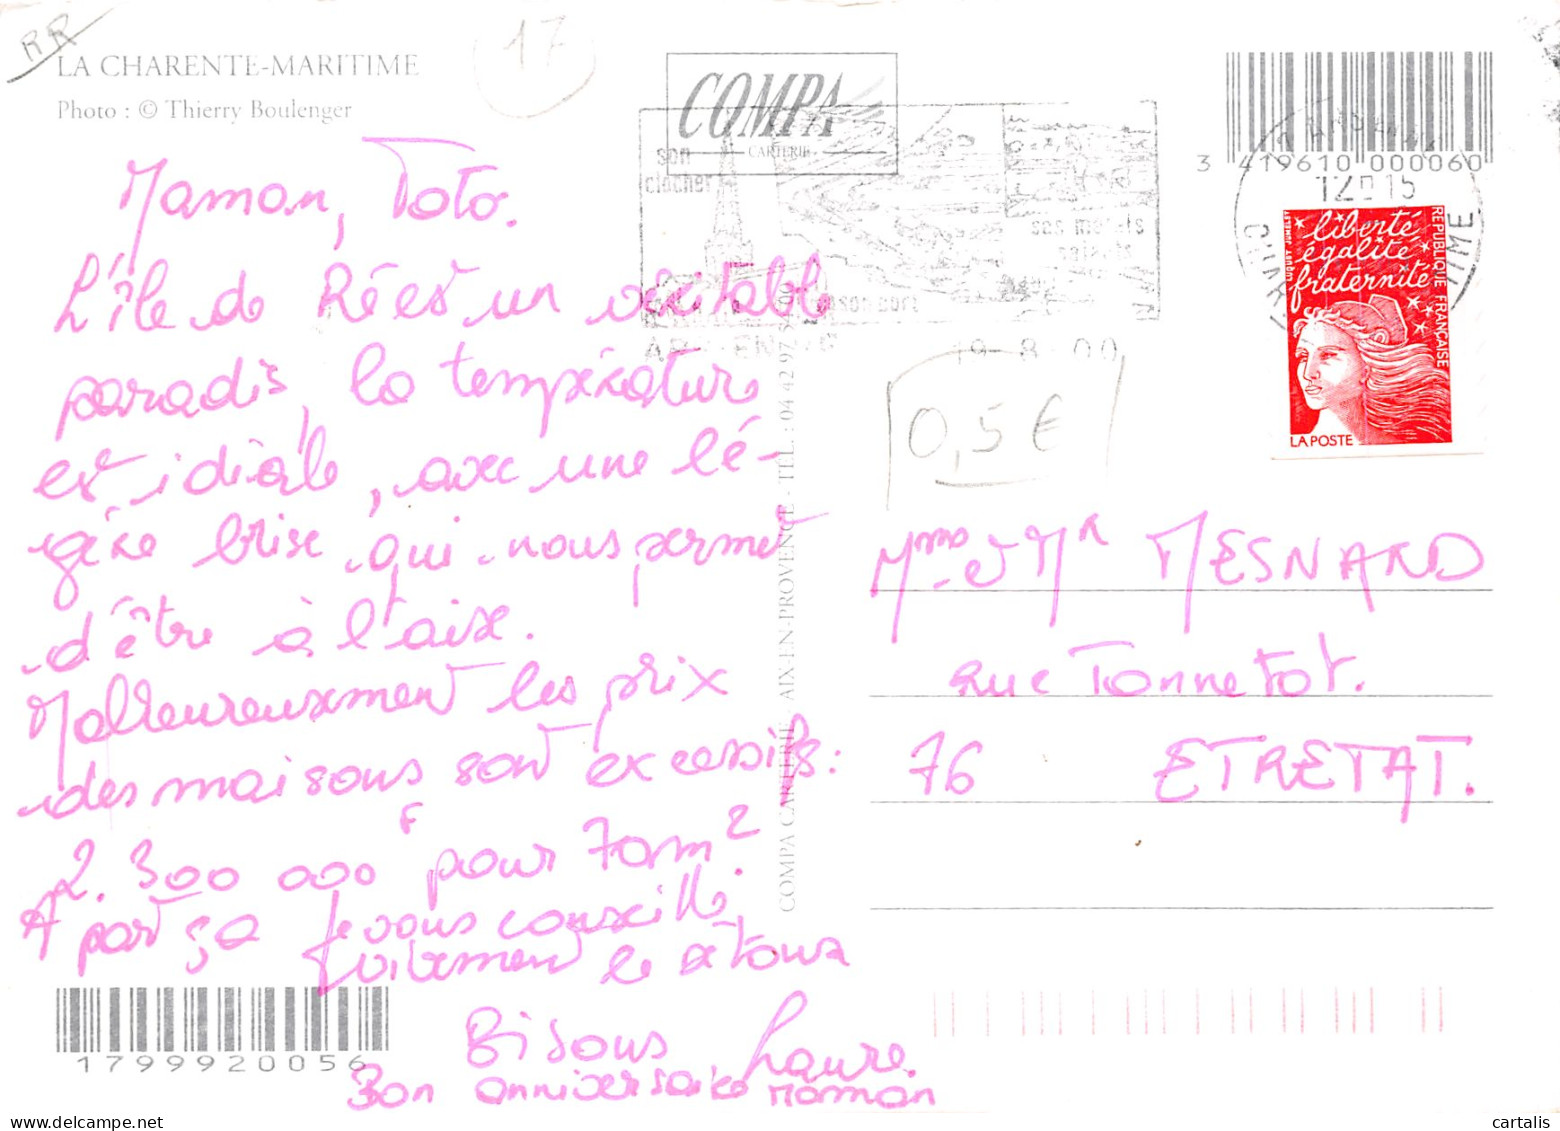 RR
LA CHARENTE-MARITIME
Photo : © Thierry Boulenger
17
COMPA
CARTERIE
son
clocher
19-8-00
12h15
3 419610 000060
liberté
égalité
fraternité
RÉPUBLIQUE FRANÇAISE
LUQUET JUMELET
LA POSTE
0,5 €
Maman, Toto.
L'île de Ré est un véritable
paradis, la température
est idéale, avec une lé-
gère brise qui nous permet
d'être à l'aise.
Malheureusement les prix
des maisons sont excessifs :
2.300 000 F pour 70m².
A part ça je vous conseille
vivement le
Bisous Laure.
Bon anniversaire maman
COMPA CARTERIE - AIX-EN-PROVENCE - TÉL. : 04 42 97
Mme et Mr MESNARD
rue Tonnetot.
76 ETRETAT.
1799920056
www.delcampe.net
cartalis